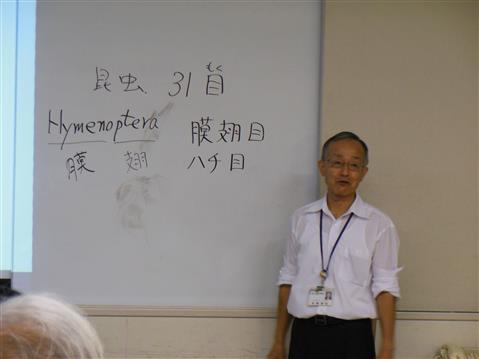 昆虫、31目
もく
Hymenoptera 膜翅目
膜 翅 ハチ目